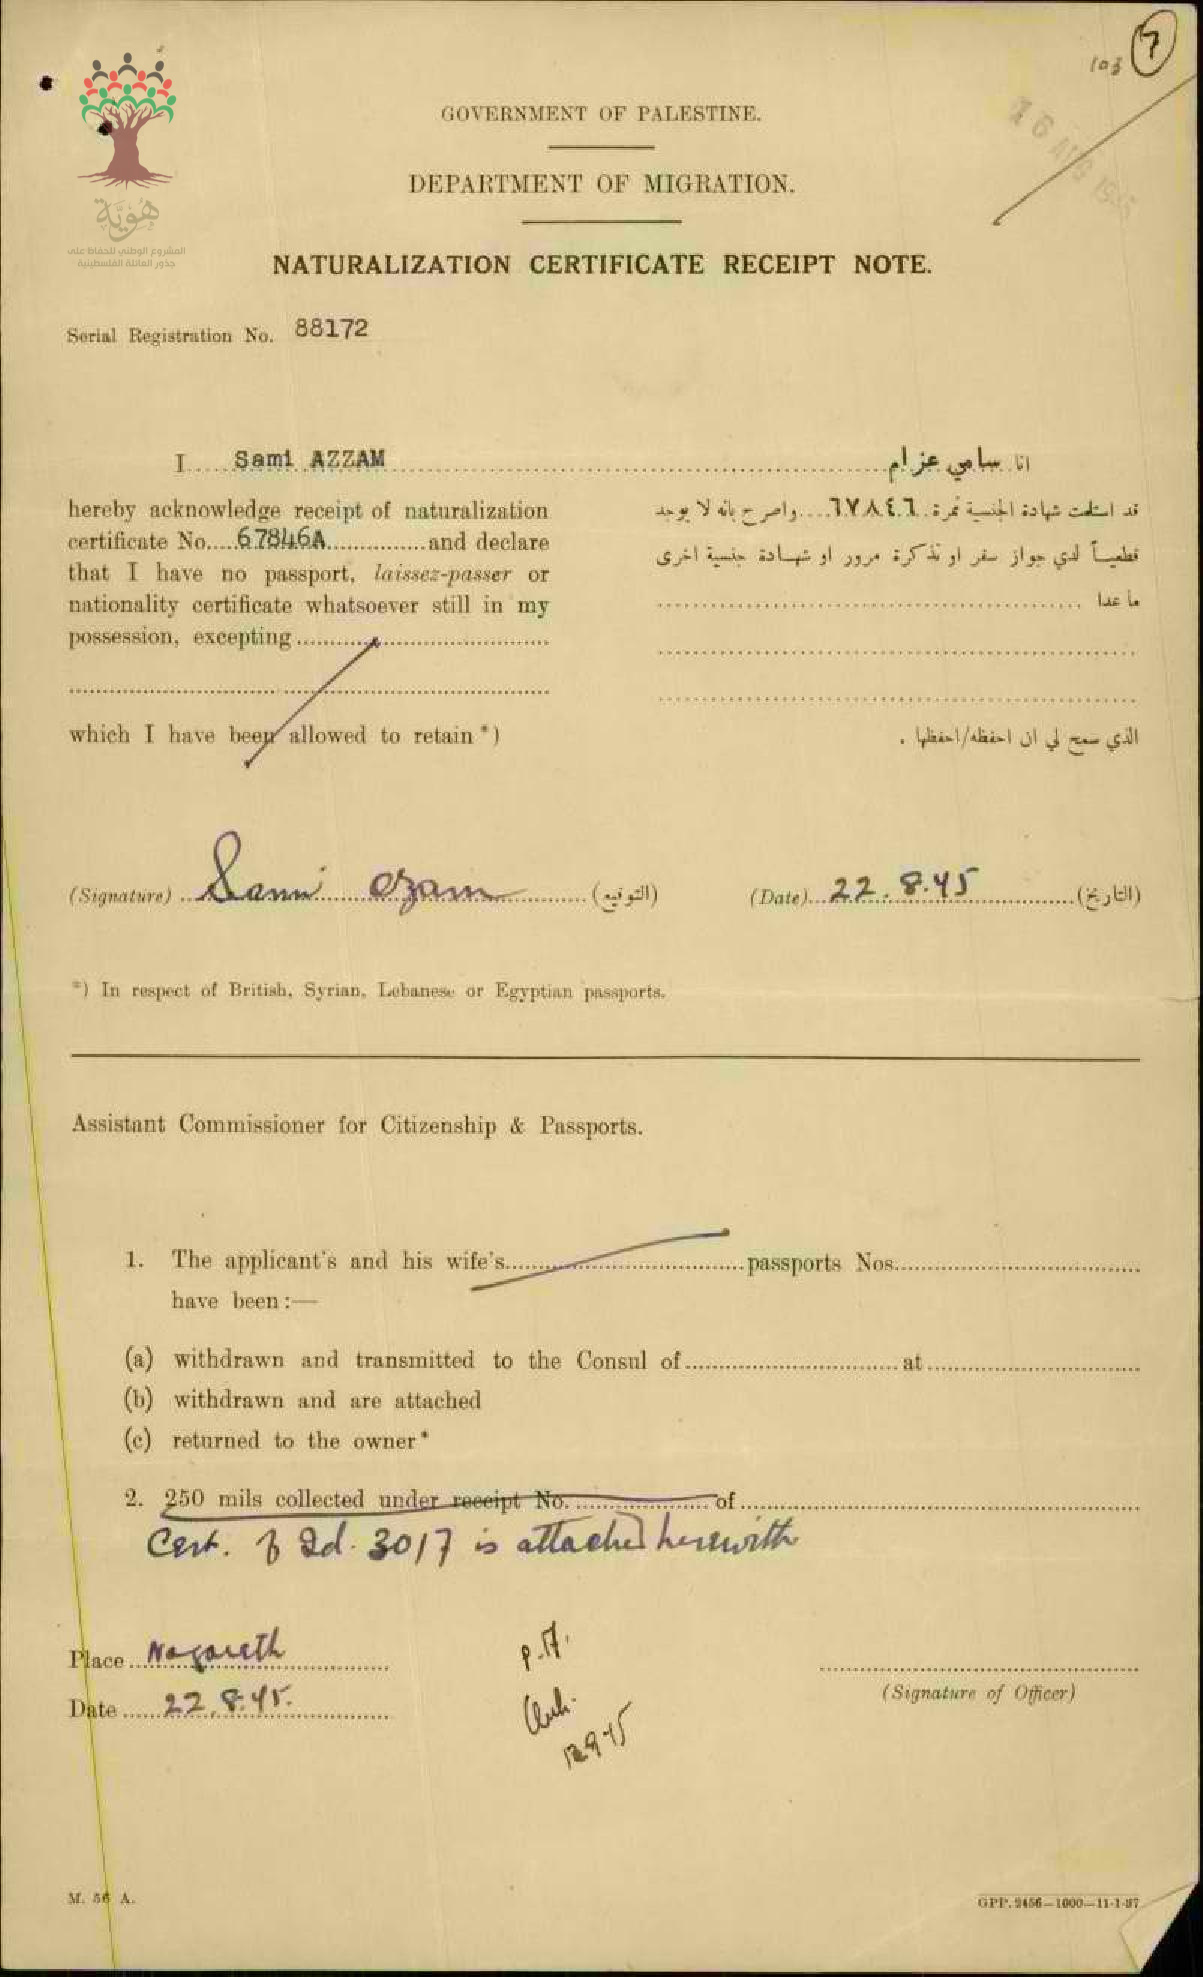 7
103
16 AUG 1945
هُوِيَّة
المشروع الوطني للحفاظ على
جذور العائلة الفلسطينية
GOVERNMENT OF PALESTINE.
DEPARTMENT OF MIGRATION.
NATURALIZATION CERTIFICATE RECEIPT NOTE.
Serial Registration No. 88172
I Sami AZZAM
hereby acknowledge receipt of naturalization
certificate No. 67846A and declare
that I have no passport, laissez-passer or
nationality certificate whatsoever still in my
possession, excepting
which I have been allowed to retain *)
انا سامي عزام
قد استلمت شهادة الجنسية نمرة ٦٧٨٤٦ واصرح بانه لا يوجد
قطعياً لدي جواز سفر او تذكرة مرور او شهادة جنسية اخرى
ما عدا
الذي سمح لي ان احفظه/احفظها .
(Signature) Sami Azam (التوقيع) (Date) 22.8.45 (التاريخ)
*) In respect of British, Syrian, Lebanese or Egyptian passports.
Assistant Commissioner for Citizenship & Passports.
1. The applicant's and his wife's passports Nos.
have been :—
(a) withdrawn and transmitted to the Consul of at
(b) withdrawn and are attached
(c) returned to the owner*
2. 250 mils collected under receipt No. of
Cert. of Id. 3017 is attached herewith
Place Nazareth
Date 22.8.45.
P.A.
12.9.45
(Signature of Officer)
M. 56 A.
GPP. 2456—1000—11-1-37